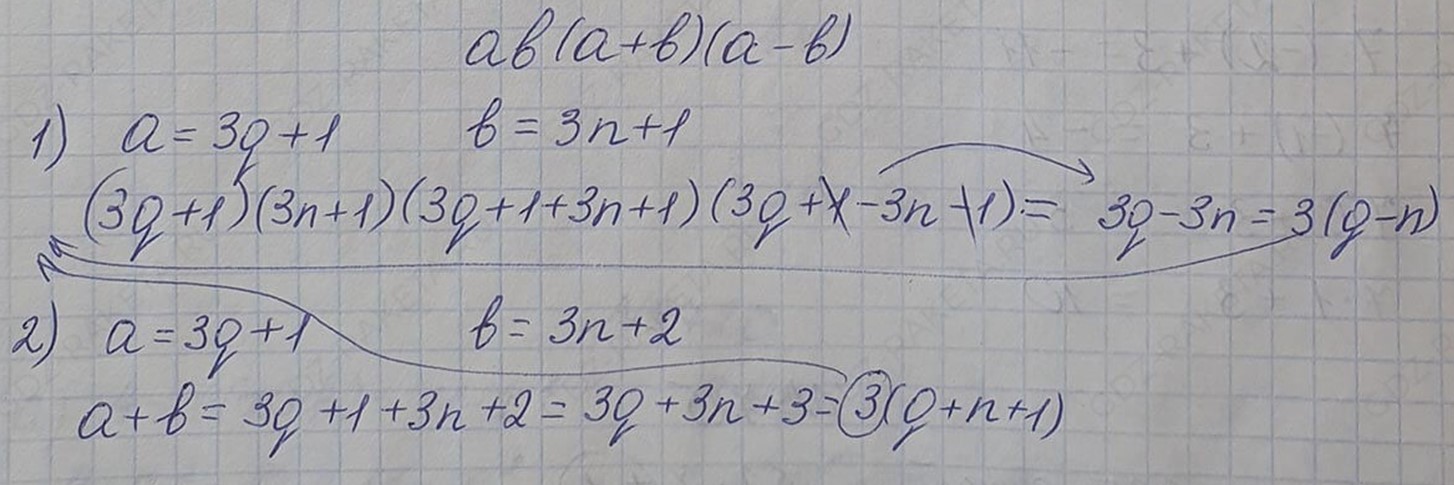 ab(a+b)(a-b)
1) a = 3q+1 b = 3n+1
(3q+1)(3n+1)(3q+1+3n+1)(3q+1-3n-1) = 3q-3n = 3(q-n)
2) a = 3q+1 b = 3n+2
a+b = 3q+1+3n+2 = 3q+3n+3 = 3(q+n+1)